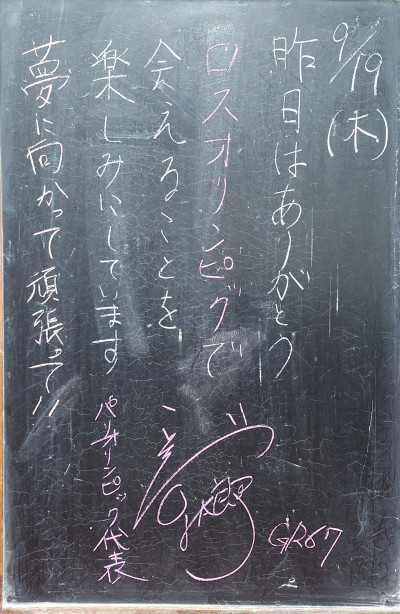 9/19(木)
昨日はありがとう
ロスオリンピックで
会えることを
楽しみにしています
夢に向かって頑張って!!
パリオリンピック代表
GR67